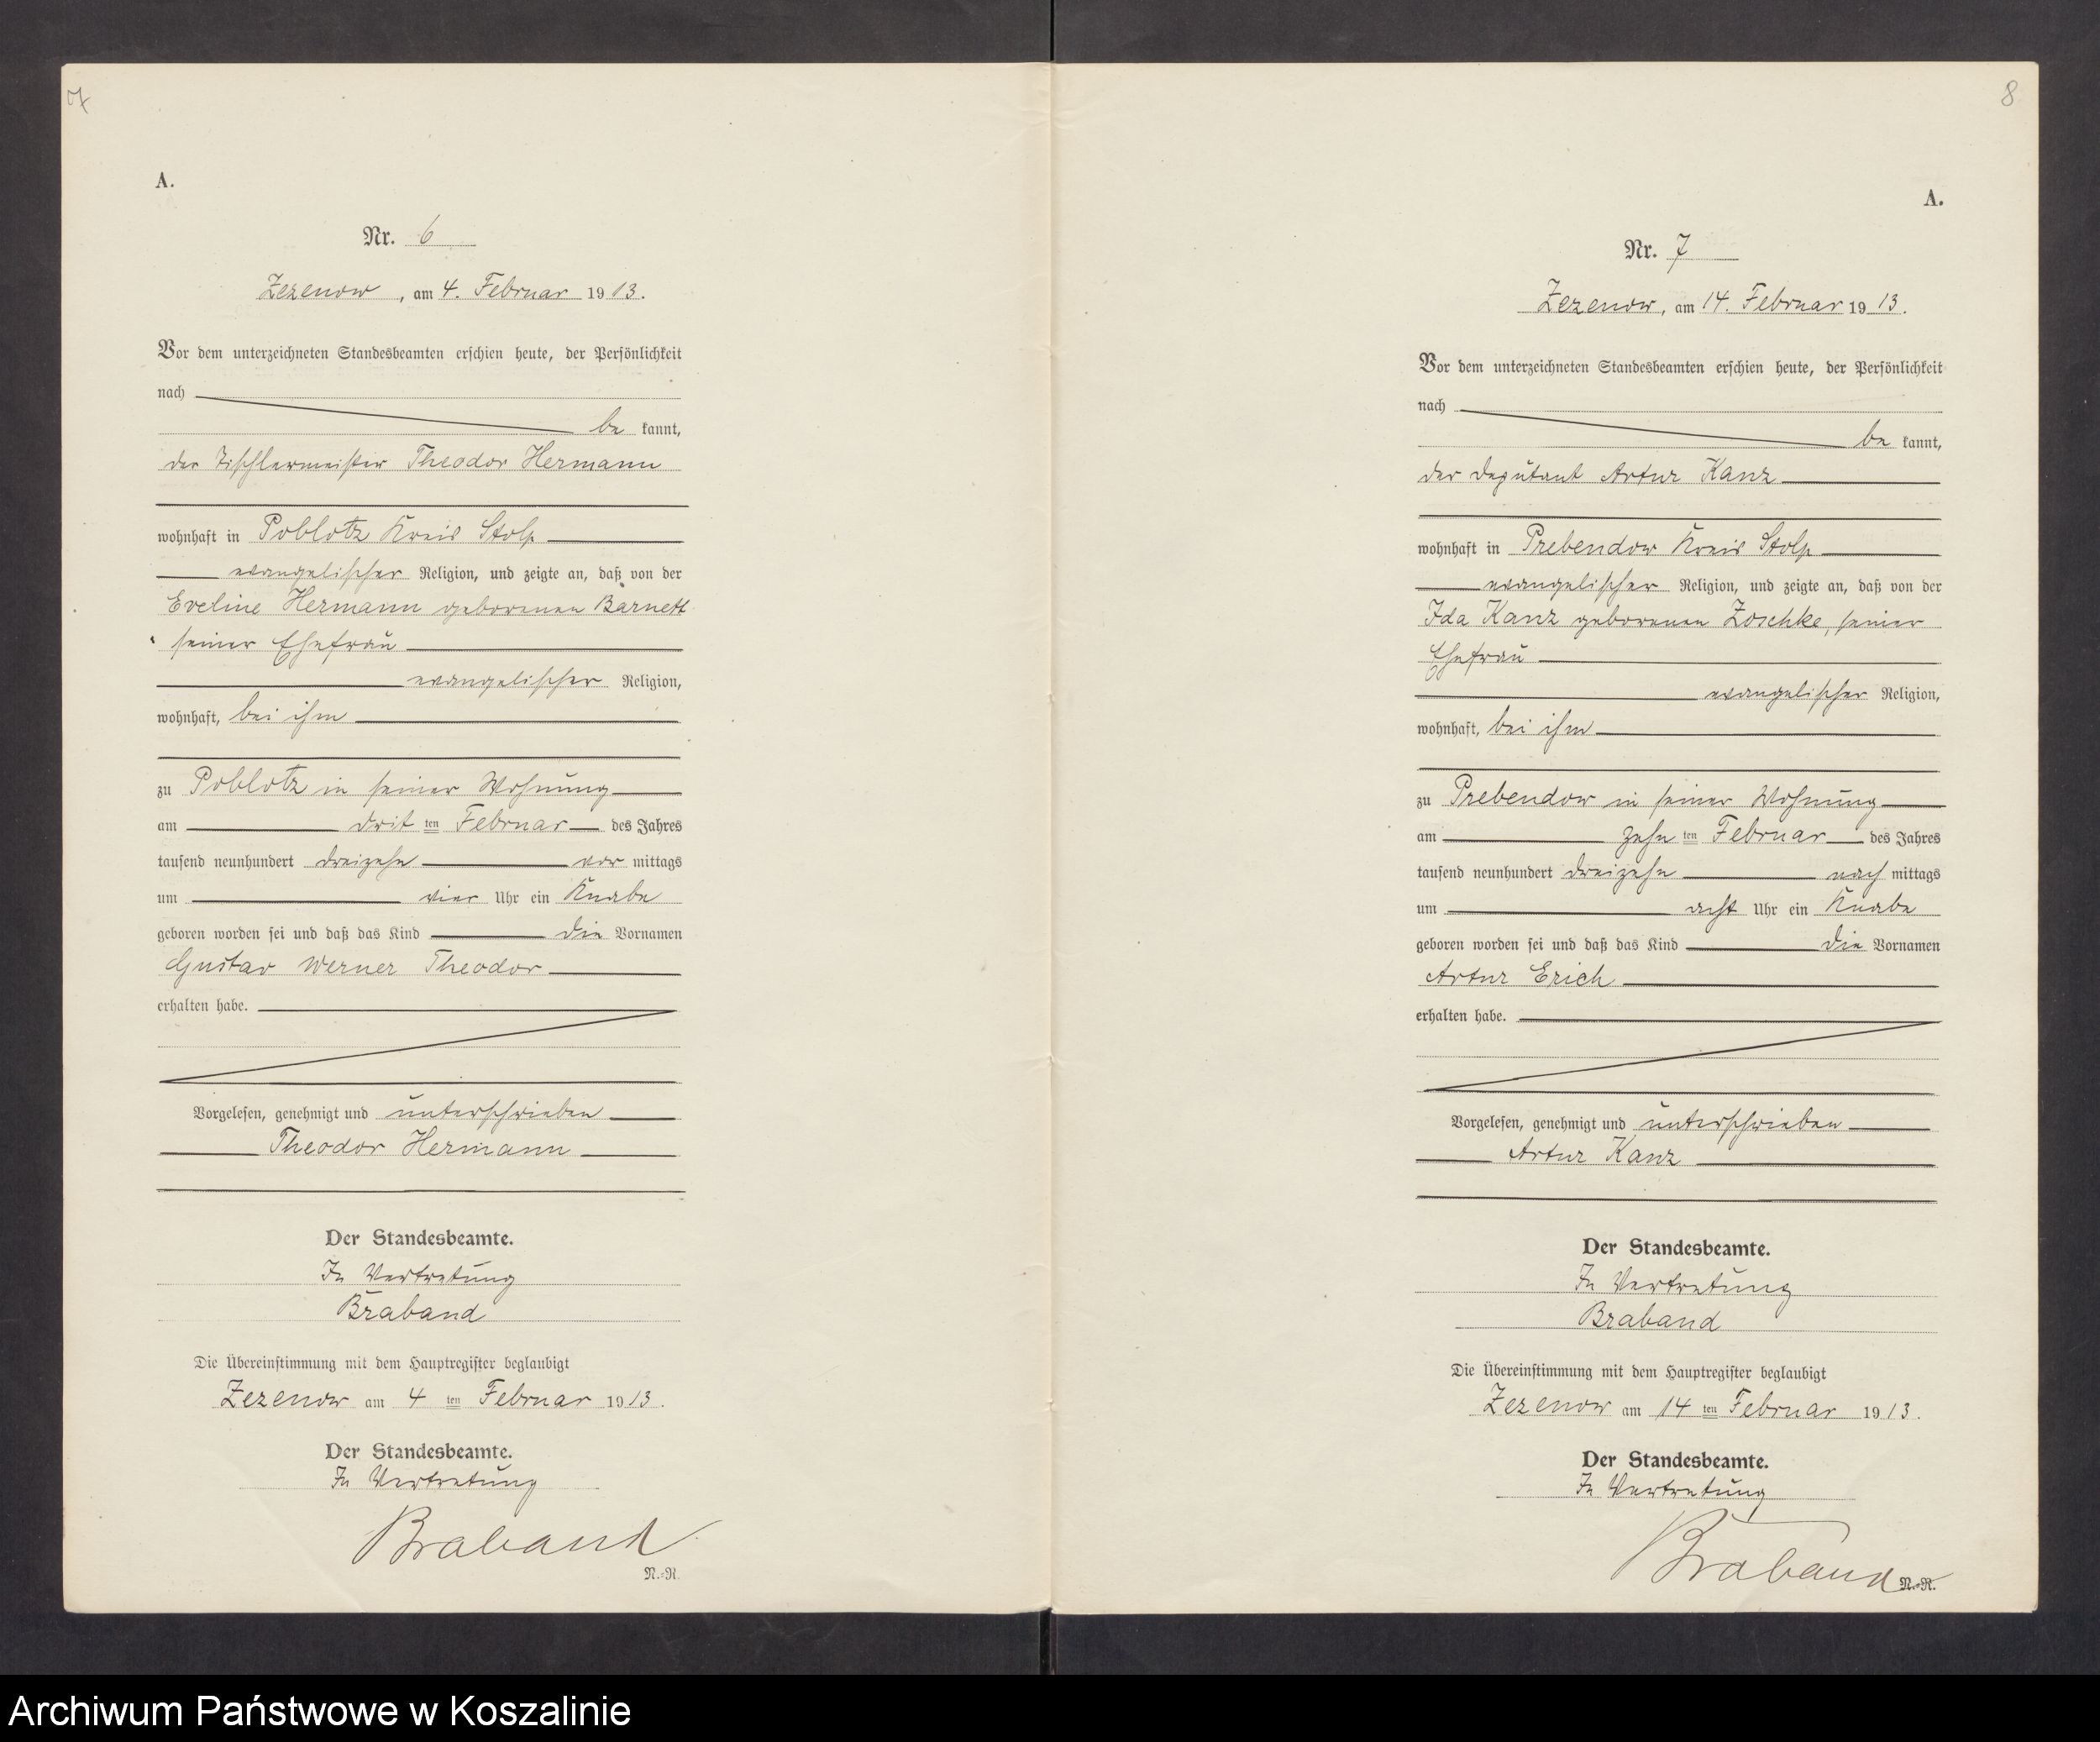 7
A.
Nr. 6
Zezenow, am 4. Februar 1913.
Vor dem unterzeichneten Standesbeamten erschien heute, der Persönlichkeit
nach
be kannt,
der Tischlermeister Theodor Hermann
wohnhaft in Poblotz Kreis Stolp
evangelischer Religion, und zeigte an, daß von der
Eveline Hermann geborenen Barnett
seiner Ehefrau
evangelischer Religion,
wohnhaft, bei ihm
zu Poblotz in seiner Wohnung
am drit ten Februar des Jahres
tausend neunhundert dreizehn vor mittags
um vier Uhr ein Knabe
geboren worden sei und daß das Kind die Vornamen
Gustav Werner Theodor
erhalten habe.
Vorgelesen, genehmigt und unterschrieben
Theodor Hermann
Der Standesbeamte.
In Vertretung
Braband
Die Übereinstimmung mit dem Hauptregister beglaubigt
Zezenow am 4 ten Februar 1913.
Der Standesbeamte.
In Vertretung
Braband
N.=R.
8
A.
Nr. 7
Zezenow, am 14. Februar 1913.
Vor dem unterzeichneten Standesbeamten erschien heute, der Persönlichkeit
nach
be kannt,
der Deputant Artur Kanz
wohnhaft in Prebendow Kreis Stolp
evangelischer Religion, und zeigte an, daß von der
Ida Kanz geborenen Zoschke, seiner
Ehefrau
evangelischer Religion,
wohnhaft, bei ihm
zu Prebendow in seiner Wohnung
am zehn ten Februar des Jahres
tausend neunhundert dreizehn nach mittags
um acht Uhr ein Knabe
geboren worden sei und daß das Kind die Vornamen
Artur Erich
erhalten habe.
Vorgelesen, genehmigt und unterschrieben
Artur Kanz
Der Standesbeamte.
In Vertretung
Braband
Die Übereinstimmung mit dem Hauptregister beglaubigt
Zezenow am 14 ten Februar 1913.
Der Standesbeamte.
In Vertretung
Braband
N.=R.
Archiwum Państwowe w Koszalinie